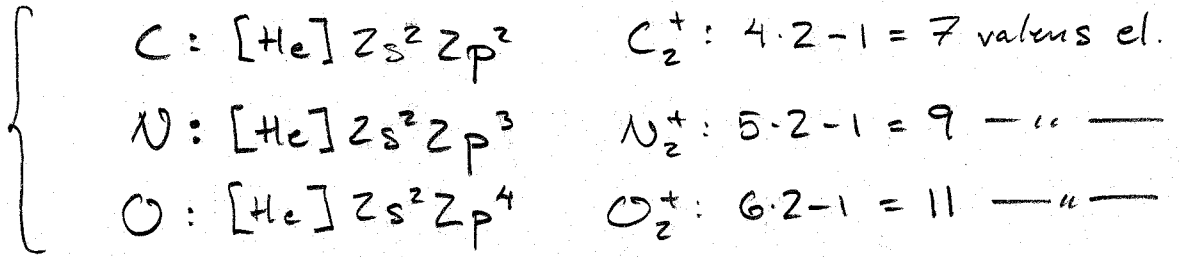 C: [He] 2s² 2p² C₂⁺: 4·2-1 = 7 valens el.
N: [He] 2s² 2p³ N₂⁺: 5·2-1 = 9 —〃—
O: [He] 2s² 2p⁴ O₂⁺: 6·2-1 = 11 —〃—